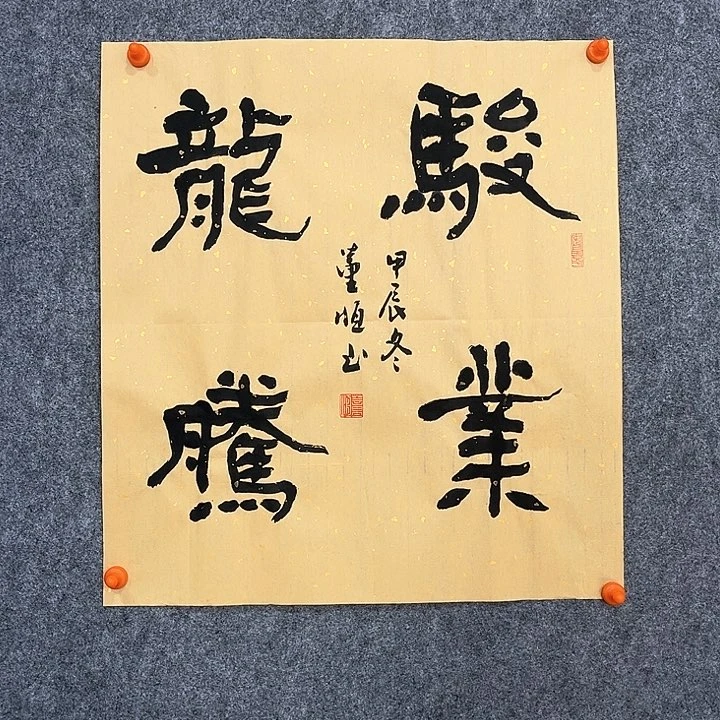 駿業
龍騰
甲辰冬
董恒书